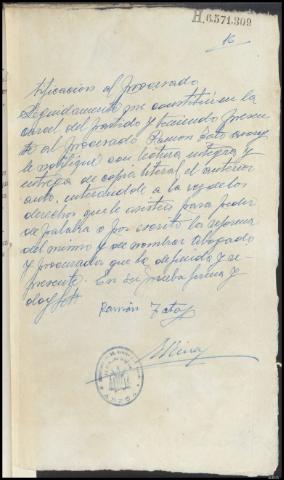 H.6571.309
16
tificación al procesado
Seguidamente me constituí en la
carcel del partido y haciendo presen
te al procesado Ramon Zato
le notifiqué con lectura integra y
entrega de copia literal el anterior
auto, enterandole a la vez de los
derechos que le asisten para pedir
de palabra o por escrito la reforma
del mismo y de nombrar Abogado
y procurador que le defienda y re-
presente. En su prueba firma y
doy fe
Ramón Zato